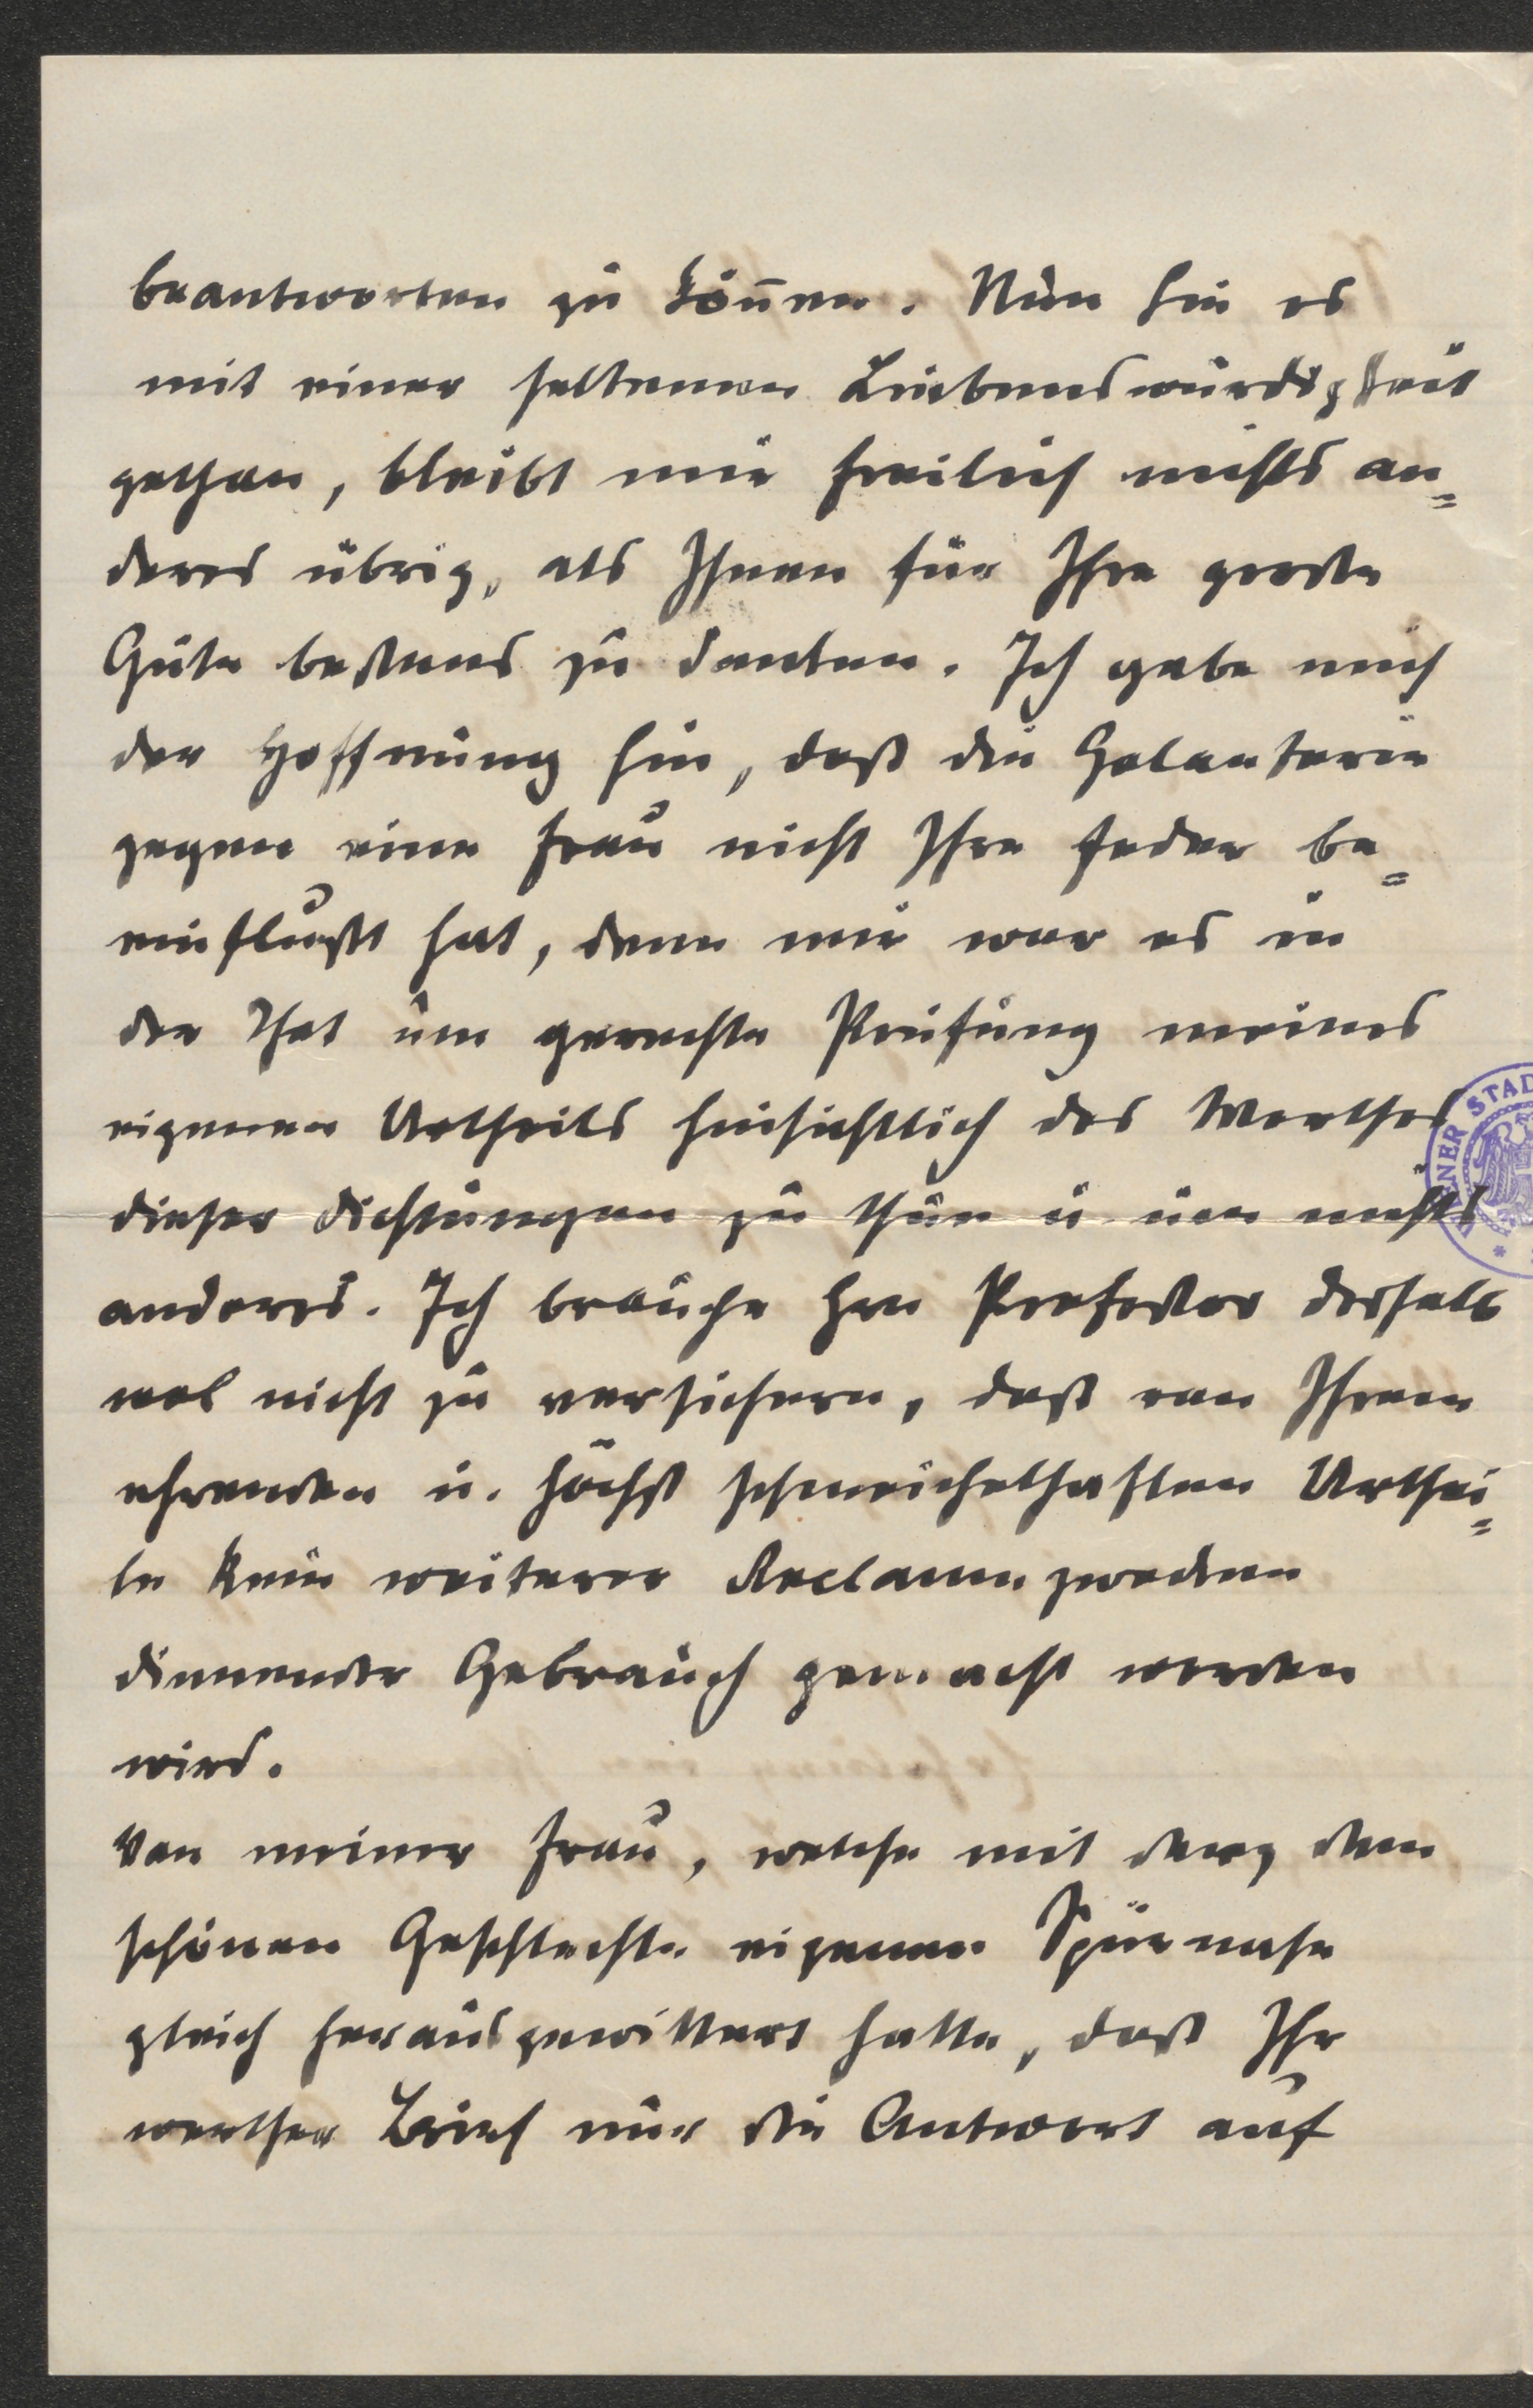 beantworten zu können. Nun Sie es
mit einer seltenen Liebenswürdigkeit
gethan, bleibt mir freilich nichts an=
deres übrig, als Ihnen für Ihre große
Güte bestens zu danken. Ich gebe mich
der Hoffnung hin, daß die Galanterie
gegen eine Frau nicht Ihre Feder be=
einflußt hat, denn mir war es in
der That um gerechte Prüfung meines
eigenen Urtheils hinsichtlich des Werthes
dieser Dichtungen zu thun u um nichts
anderes. Ich brauche Hrn Professor deshalb
wol nicht zu versichern, daß von Ihrem
ehrenden u. höchst schmeichelhaften Urthei=
le kein weiterer Reclamezwecken
dienender Gebrauch gemacht werden
wird.
Von meiner Frau, welche mit der dem
schönen Geschlechte eigenen Spürnase
gleich herausgewittert hatte, daß Ihr
werther Brief nur die Antwort auf